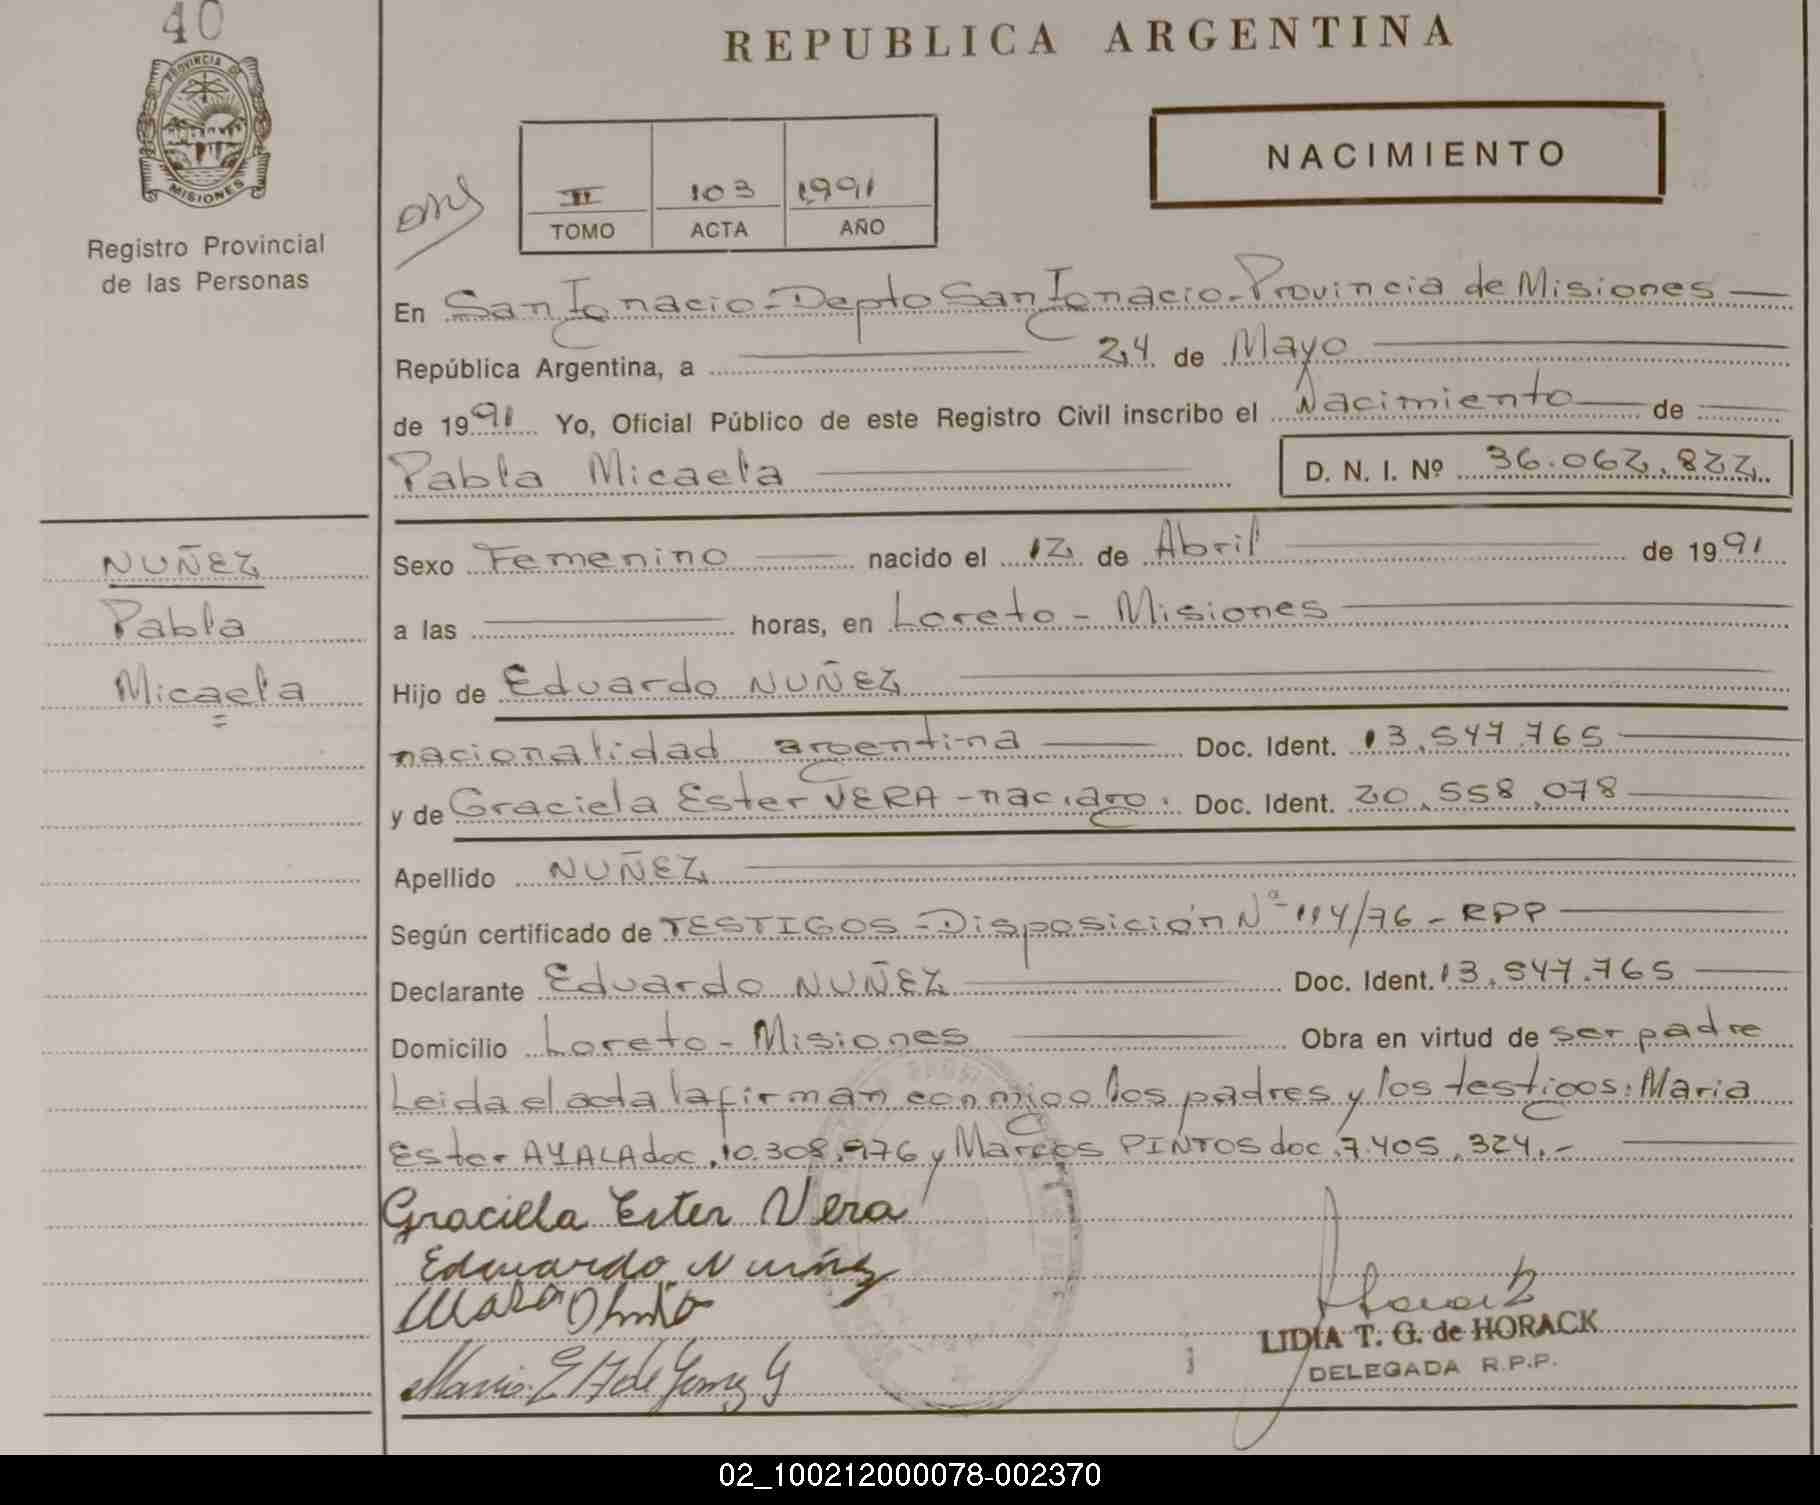 40
REPUBLICA ARGENTINA
PROVINCIA DE
MISIONES
Registro Provincial
de las Personas
II 103 1991
TOMO ACTA AÑO
NACIMIENTO
En San Ignacio - Depto San Ignacio - Provincia de Misiones
República Argentina, a 24 de Mayo
de 1991 Yo, Oficial Público de este Registro Civil inscribo el Nacimiento de
Pabla Micaela D. N. I. Nº 36.062.822
NUÑEZ
Pabla
Micaela
Sexo Femenino nacido el 12 de Abril de 1991
a las horas, en Loreto - Misiones
Hijo de Eduardo NUÑEZ
nacionalidad argentina Doc. Ident. 13.547.765
y de Graciela Ester VERA - nac. arg. Doc. Ident. 20.558.078
Apellido NUÑEZ
Según certificado de TESTIGOS - Disposición Nº 114/76 - RPP
Declarante Eduardo NUÑEZ Doc. Ident. 13.547.765
Domicilio Loreto - Misiones Obra en virtud de ser padre
Leida el acta la firman conmigo los padres y los testigos: Maria
Ester AYALA doc. 10.308.976 y Marcos PINTOS doc. 7.405.324.-
Graciella Ester Vera
Eduardo Nuñez
LIDIA T. G. de HORACK
DELEGADA R.P.P.
02_100212000078-002370